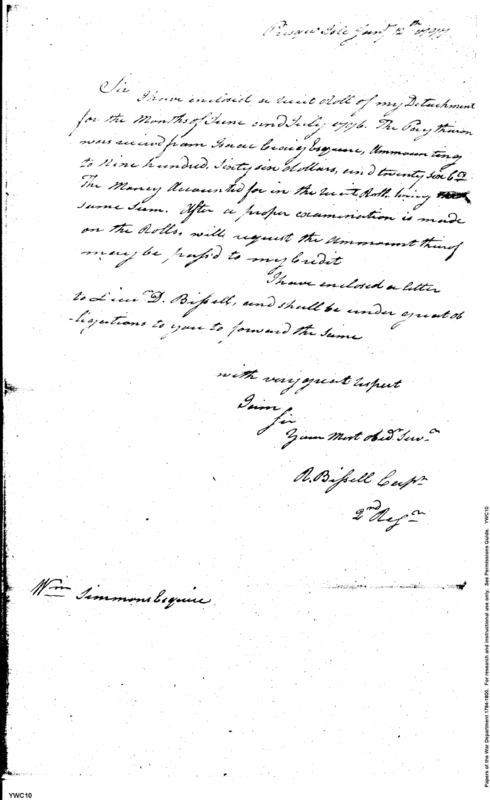 Presque Isle Jany 12th 1797
Sir
I have enclosed a recit Roll of my Detachment
for the Months of June and July 1796. The Pay thereon
was received from Isaac Craig Esquire, Ammounting
to Nine hundred, Sixty six dollars, and twenty six Cts
The Money Accounted for in the recit Roll, being
same Sum. After a proper examination is made
on the Rolls, will request the Ammount thereof
may be pass'd to my Credit
I have enclosed a letter
to Lieut D. Bissell, and shall be under great ob
-ligations to you to forward the same
with very great respect
I am
Sir
Your Most Obdt Servt
R. Bissell Captn
2nd Regt
Wm Simmons Esquire
YWC10
Papers of the War Department 1784-1800. For research and instructional use only. See Permissions Guide. YWC10